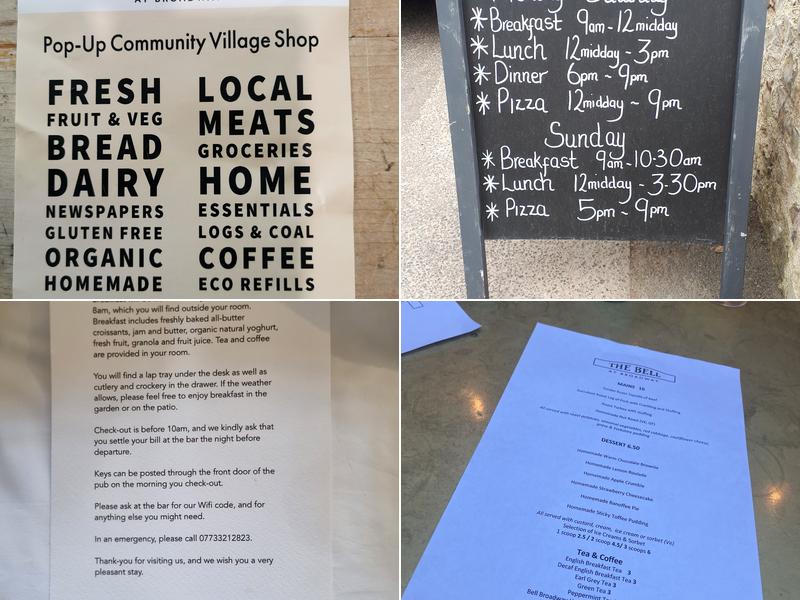 Pop-Up Community Village Shop
FRESH
FRUIT & VEG
BREAD
DAIRY
NEWSPAPERS
GLUTEN FREE
ORGANIC
HOMEMADE
LOCAL
MEATS
GROCERIES
HOME
ESSENTIALS
LOGS & COAL
COFFEE
ECO REFILLS
Breakfast 9am - 12midday
Lunch 12midday - 3pm
Dinner 6pm - 9pm
Pizza 12midday - 9pm
Sunday
Breakfast 9am - 10·30am
Lunch 12midday - 3·30pm
Pizza 5pm - 9pm
8am, which you will find outside your room.
Breakfast includes freshly baked all-butter
croissants, jam and butter, organic natural yoghurt,
fresh fruit, granola and fruit juice. Tea and coffee
are provided in your room.
You will find a lap tray under the desk as well as
cutlery and crockery in the drawer. If the weather
allows, please feel free to enjoy breakfast in the
garden or on the patio.
Check-out is before 10am, and we kindly ask that
you settle your bill at the bar the night before
departure.
Keys can be posted through the front door of the
pub on the morning you check-out.
Please ask at the bar for our Wifi code, and for
anything else you might need.
In an emergency, please call 07733212823.
Thank-you for visiting us, and we wish you a very
pleasant stay.
THE BELL
AT BROADWAY
MAINS 16
Roast Turkey with stuffing
Homemade Nut Roast
DESSERT 6.50
Homemade Warm Chocolate Brownie
Homemade Lemon Roulade
Homemade Apple Crumble
Homemade Strawberry Cheesecake
Homemade Banoffee Pie
Homemade Sticky Toffee Pudding
All served with custord, cream, ice cream or sorbet (Ve)
Selection of Ice Creams & Sorbet
1 scoop 2.5 / 2 scoop 4.5/ 3 scoops 6
Tea & Coffee
English Breakfast Tea 3
Decaf English Breakfast Tea 3
Earl Grey Tea 3
Green Tea 3
Peppermint
Bell